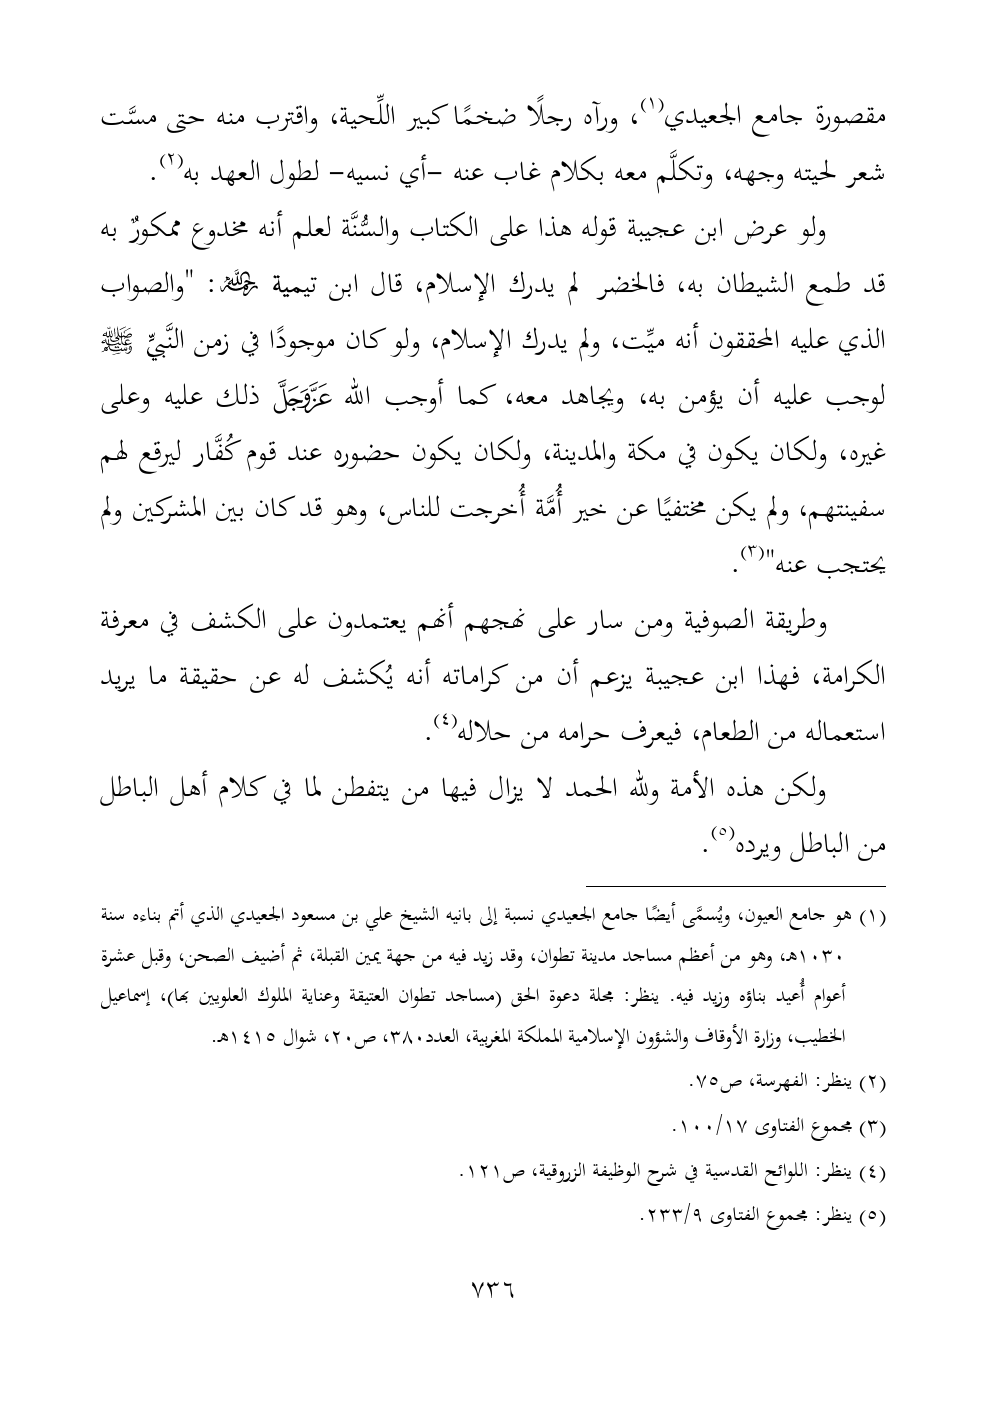 مقصورة جامع الجعيدي(١)، ورآه رجلًا ضخمًا كبير اللِّحية، واقترب منه حتى مسَّت
شعر لحيته وجهه، وتكلَّم معه بكلام غاب عنه -أي نسيه- لطول العهد به(٢).
ولو عرض ابن عجيبة قوله هذا على الكتاب والسُّنَّة لعلم أنه مخدوع ممكورٌ به
قد طمع الشيطان به، فالخضر لم يدرك الإسلام، قال ابن تيمية رحمه الله: "والصواب
الذي عليه المحققون أنه ميِّت، ولم يدرك الإسلام، ولو كان موجودًا في زمن النَّبيِّ ﷺ
لوجب عليه أن يؤمن به، ويجاهد معه، كما أوجب الله عَزَّوَجَلَّ ذلك عليه وعلى
غيره، ولكان يكون في مكة والمدينة، ولكان يكون حضوره عند قوم كُفَّار ليرقع لهم
سفينتهم، ولم يكن مختفيًا عن خير أُمَّة أُخرجت للناس، وهو قد كان بين المشركين ولم
يحتجب عنه"(٣).
وطريقة الصوفية ومن سار على نهجهم أنهم يعتمدون على الكشف في معرفة
الكرامة، فهذا ابن عجيبة يزعم أن من كراماته أنه يُكشف له عن حقيقة ما يريد
استعماله من الطعام، فيعرف حرامه من حلاله(٤).
ولكن هذه الأمة ولله الحمد لا يزال فيها من يتفطن لما في كلام أهل الباطل
من الباطل ويرده(٥).
(١) هو جامع العيون، ويُسمَّى أيضًا جامع الجعيدي نسبة إلى بانيه الشيخ علي بن مسعود الجعيدي الذي أتم بناءه سنة
١٠٣٠هـ، وهو من أعظم مساجد مدينة تطوان، وقد زيد فيه من جهة يمين القبلة، ثم أضيف الصحن، وقبل عشرة
أعوام أُعيد بناؤه وزيد فيه. ينظر: مجلة دعوة الحق (مساجد تطوان العتيقة وعناية الملوك العلويين بها)، إسماعيل
الخطيب، وزارة الأوقاف والشؤون الإسلامية المملكة المغربية، العدد٣٨٠، ص٢٠، شوال ١٤١٥هـ.
(٢) ينظر: الفهرسة، ص٧٥.
(٣) مجموع الفتاوى ١٠٠/١٧.
(٤) ينظر: اللوائح القدسية في شرح الوظيفة الزروقية، ص١٢١.
(٥) ينظر: مجموع الفتاوى ٢٣٣/٩.
٧٣٦